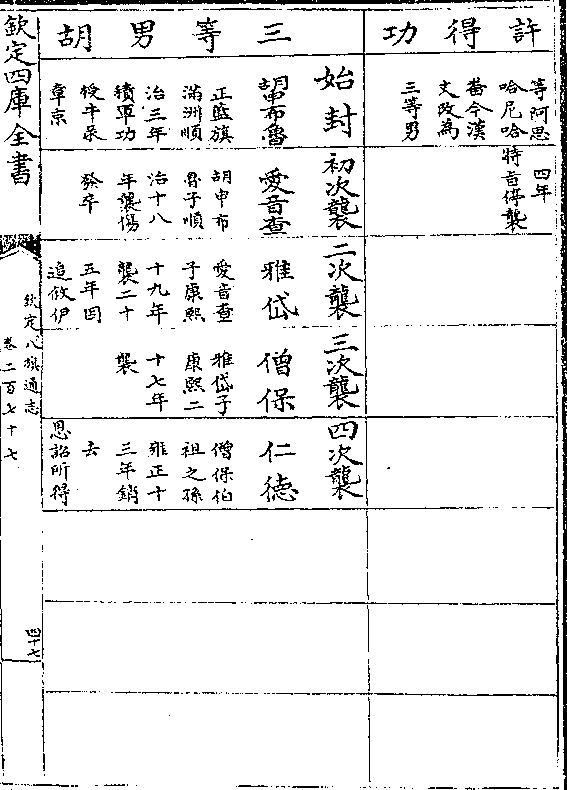 許得功
等阿思
哈尼哈
番今漢
文改為
三等男
四年
特旨停襲
三等男胡
始封
胡申布魯
正藍旗
滿洲順
治三年
積軍功
授牛彔
章京
初次襲
愛音查
胡申布
魯子順
治十八
年襲傷
發卒
二次襲
雅岱
愛音查
子康熙
十九年
襲二十
五年因
追敘伊
三次襲
僧保
雅岱子
康熙二
十七年
襲
四次襲
仁德
僧保伯
祖之孫
雍正十
三年銷
去
恩詔所得
欽定四庫全書
欽定八旗通志
卷二百七十七
四十七